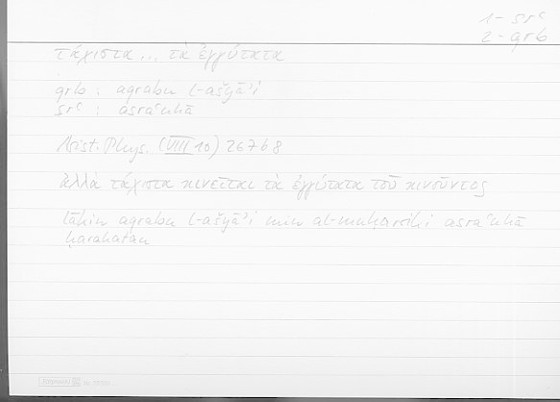 1 - srʿ
2 - qrb
τάχιστα... τὰ ἐγγύτατα
qrb : aqrabu l-ašyāʾi
srʿ : asraʿuhā
Arist. Phys. (VIII 10) 267b8
ἀλλὰ τάχιστα κινεῖται τὰ ἐγγύτατα τοῦ κινοῦντος
lākin aqrabu l-ašyāʾi min al-muḥarriki asraʿuhā
ḥarakatan